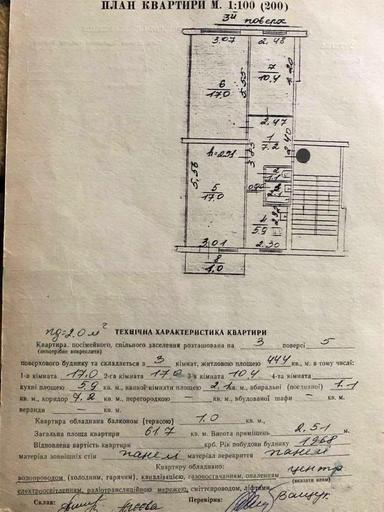 ПЛАН КВАРТИРИ М. 1:100 (200)
3й поверх
3.07 2.48
5.55 4.20
6 7
17.0 10.4
2.47
1
7.2
h=2.51
5.56
5
17.0
4
5.9
3.01 2.30
8
1.0
пд=2.0 м²
ТЕХНІЧНА ХАРАКТЕРИСТИКА КВАРТИРИ
Квартира, посімейного, спільного заселення розташована на 3 поверсі 5
(непотрібне викреслити)
поверхового будинку та складається з 3 кімнат, житловою площею 44.4 кв. м, в тому числі:
1-а кімната 17.0 2-га кімната 17.0 3-я кімната 10.4 4-та кімната
кухні площею 5.9 кв. м, ванної кімнати площею 2.1 кв. м, вбиральні (поєднаної) 1.1
кв. м, коридор 7.2 кв. м, перегородкою — кв. м, вбудованої шафи — кв. м,
веранди — кв. м.
Квартира обладнана балконом (терасою) 1.0 кв. м.
Загальна площа квартири 61.7 кв. м. Висота приміщень 2.51 м.
Відновлена вартість квартири крб. Рік побудови будинку 1968
матеріал зовнішніх стін панелі матеріал перекриття панелі
Квартиру обладнано: центр
водопроводом, (холодним, гарячим), каналізацією, газопостачанням, опаленням
(вказати яким)
електроосвітленням, радіотрансляційною мережею, сміттєпроводом, ліфтом.
Склав: Перевірив: